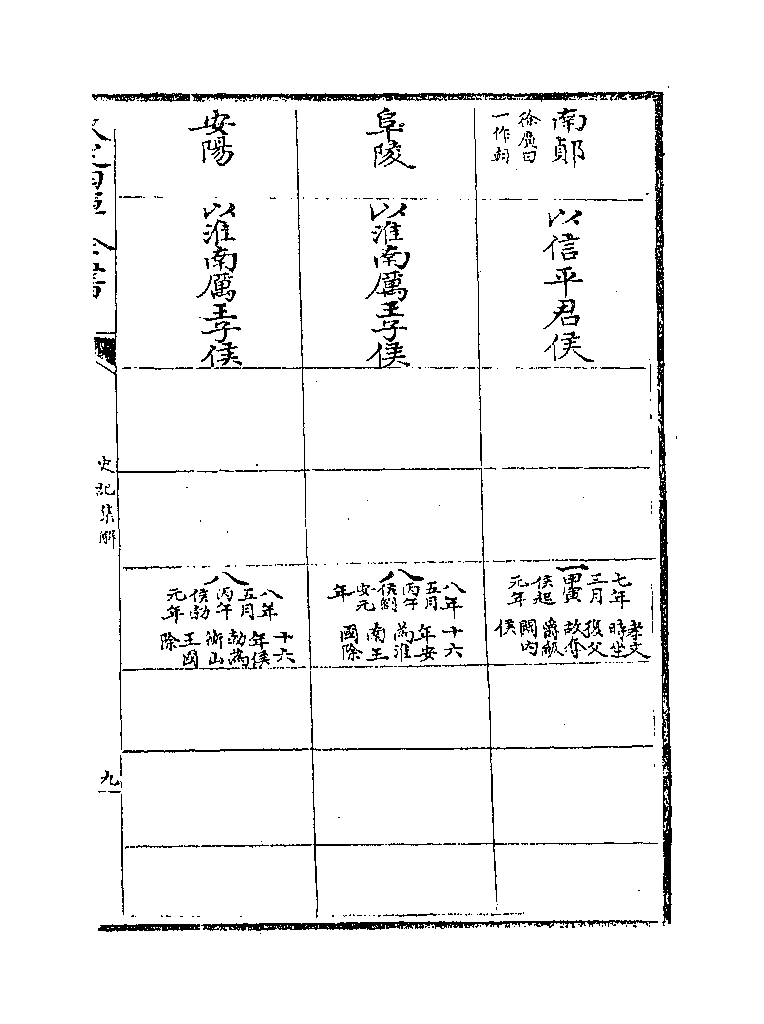 南
徐廣曰
一作
以信平君侯
一
七年
三月
甲寅
侯起
元年
孝文
時坐
後父
故奪
爵級
關内
侯
阜陵
以淮南厲王子侯
八
八年
五月
丙午
侯劉
安元
年
十六
年安
為淮
南王
國除
安陽
以淮南厲王子侯
八
八年
五月
丙午
侯勃
元年
十六
年侯
勃為
衡山
王國
除
史記集解
九